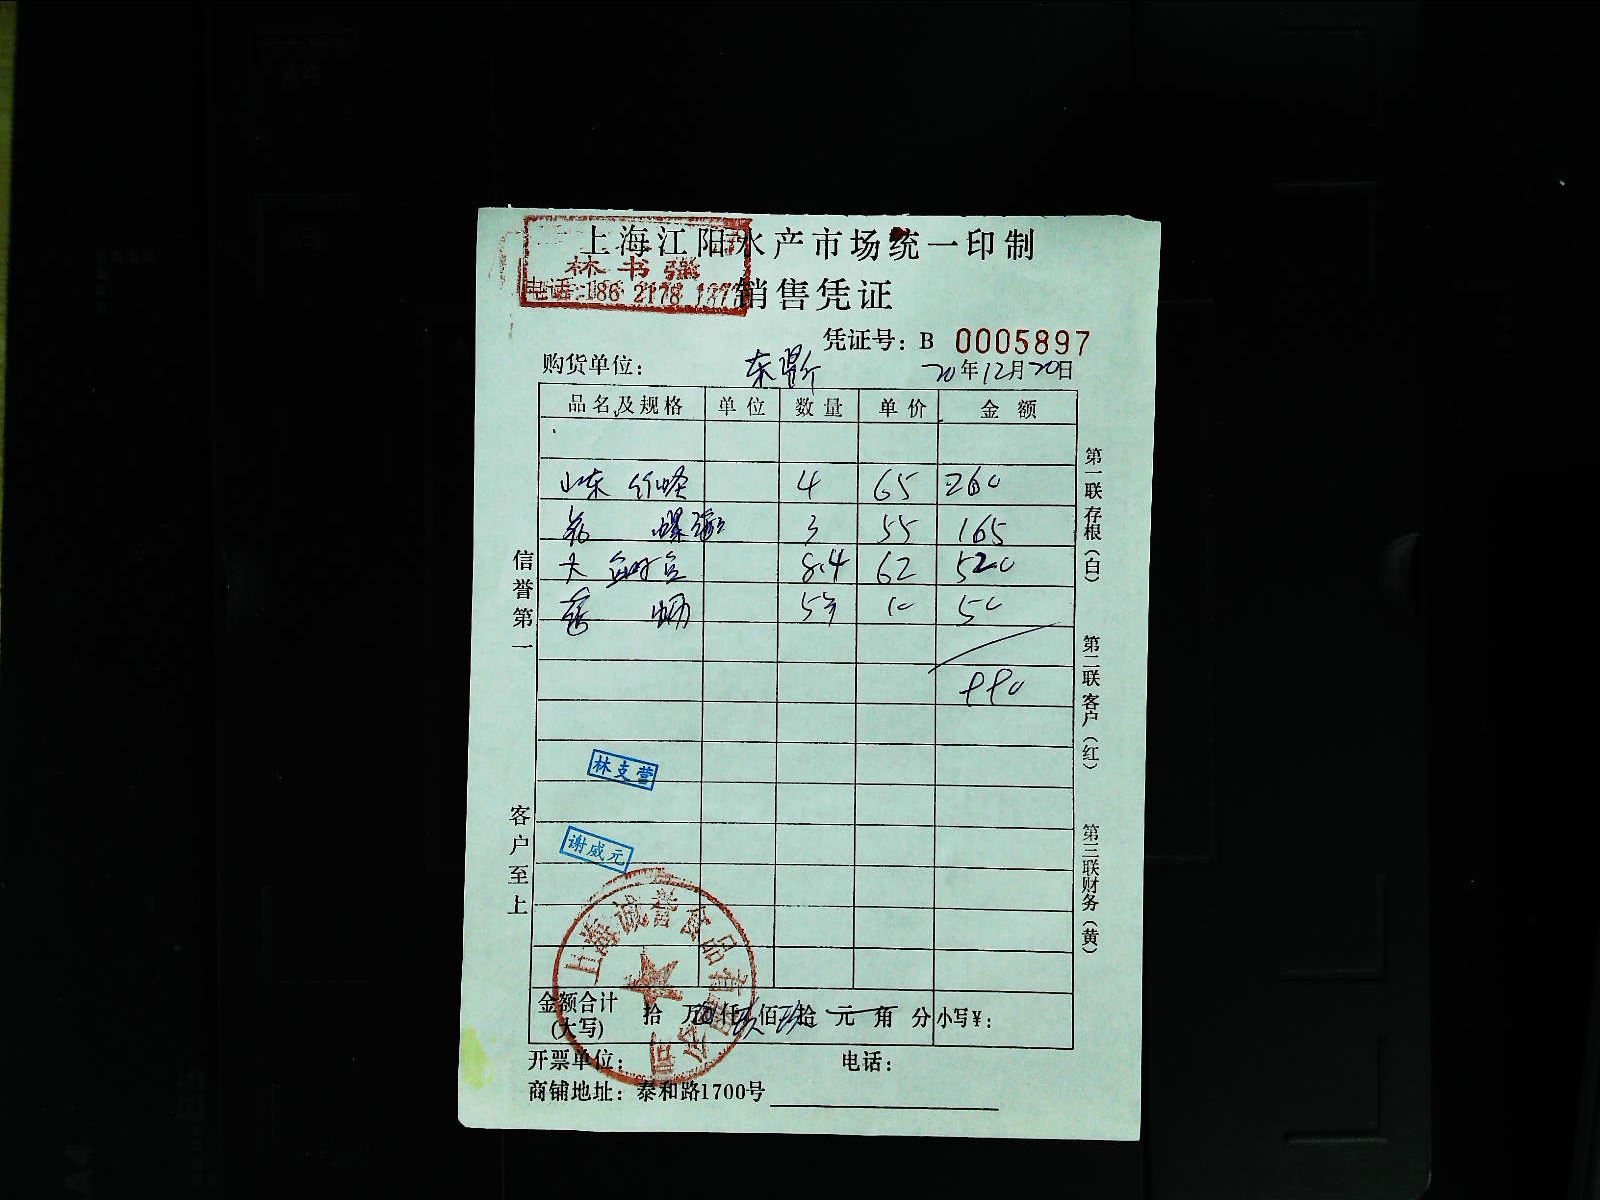 上海江阳水产市场统一印制
林书强
电话:186 2178 187
销售凭证
凭证号: B 0005897
购货单位: 东 20年12月20日
品名及规格 单位 数量 单价 金额
山东 竹蛏 4 65 260
花 螺 3 55 165
大 8.4 62 520
5 10 50
990
信誉第一
客户至上
第一联 存根(白)
第二联 客户(红)
第三联 财务(黄)
林支营
谢威元
上海诚誉食品有限公司
金额合计(大写) 拾 万 仟 玖佰玖拾 元 角 分 小写¥:
开票单位: 电话:
商铺地址: 泰和路1700号